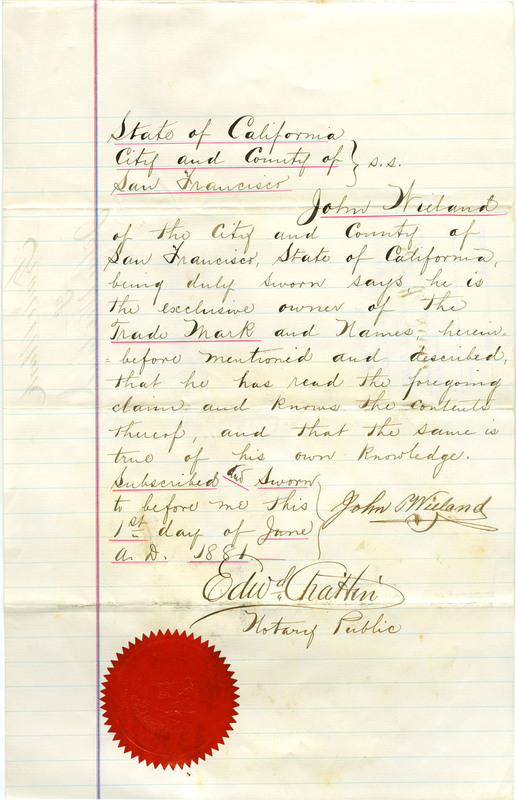 State of California
City and County of } s.s.
San Francisco
John Wieland
of the City and County of
San Francisco, State of California,
being duly sworn says, he is
the exclusive owner of the
Trade Mark and Names, herein-
=before mentioned and described,
that he has read the foregoing
claim and knows the contents
thereof, and that the same is
true of his own knowledge.
Subscribed and Sworn
to before me this
1st day of June
A. D. 1881
John Wieland
Edwd. Chattin
Notary Public